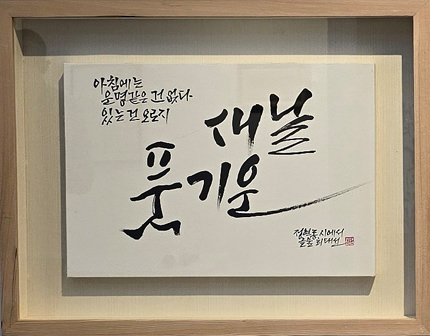 아침에는
운명같은 건 없다
있는 건 오로지
새날
풋기운
정현종 시에서